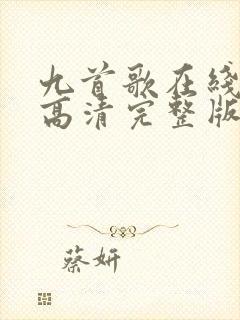 九首歌在线
高清完整版
蔡妍